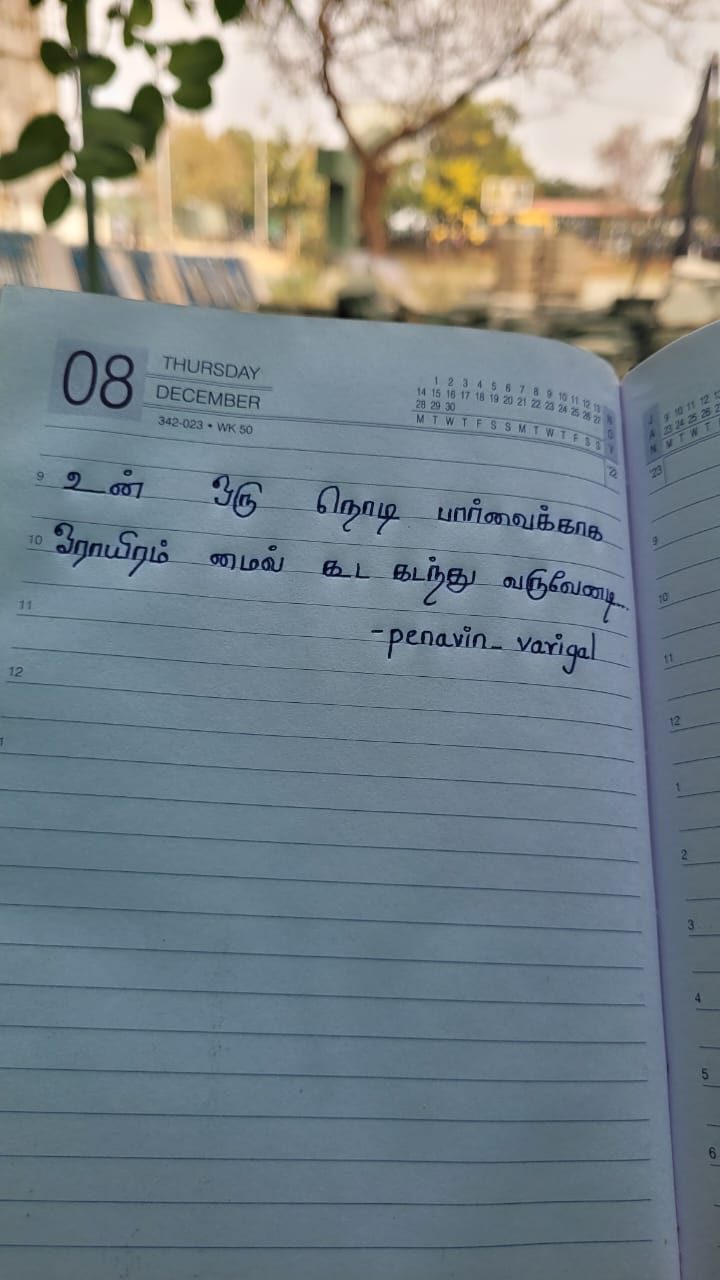 08
THURSDAY
DECEMBER
342-023 • WK 50
1 2 3 4 5 6 7 8 9 10 11 12 13
14 15 16 17 18 19 20 21 22 23 24 25 26 27
28 29 30
M T W T F S S M T W T F S S
NOV
'22
9 உன் ஒரு நொடி பார்வைக்காக
10 ஓராயிரம் மைல் கூட கடந்து வருவேனடி...
11 -penavin_ varigal
12
1
JAN
'23
9 10 11 12
23 24 25 26
M T W T
9
10
11
12
1
2
3
4
5
6